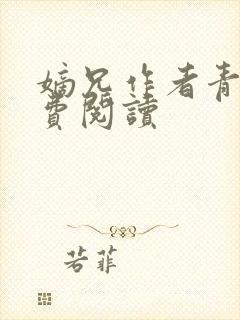 嫡兄作者青
費閱讀
若菲